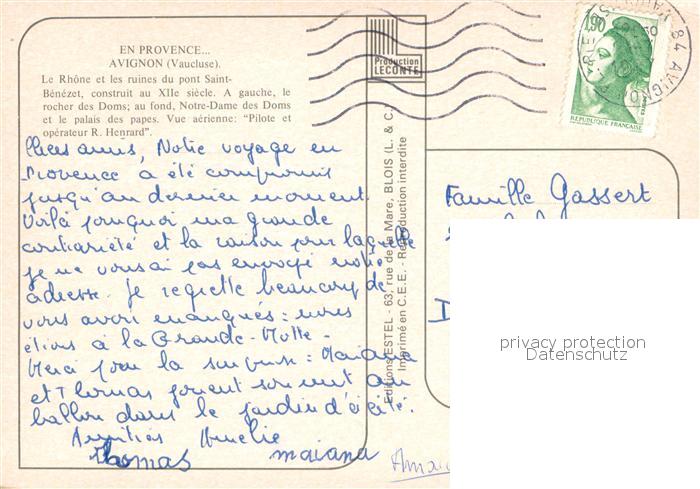 EN PROVENCE...
AVIGNON (Vaucluse).
Le Rhône et les ruines du pont Saint-
Bénézet, construit au XIIe siècle. A gauche, le
rocher des Doms; au fond, Notre-Dame des Doms
et le palais des papes. Vue aérienne: "Pilote et
opérateur R. Henrard".
Chers amis, Notre voyage en
Provence a été compromis
jusqu'au dernier moment.
Voilà pourquoi ma grande
contrariété et la raison pour laquelle
je ne vous ai pas envoyé notre
adresse. Je regrette beaucoup de
vous avoir manqués: nous
étions à la Grande-Motte.
Merci pour la surprise: Maiana
et Thomas jouent souvent au
ballon dans le jardin d'à côté.
Amitiés Amélie
Thomas maiana
Production
LECONTE
Editions ESTEL - 63, rue de la Mare, BLOIS (L. & C.)
Imprimé en C.E.E. - Reproduction interdite
1,90
REPUBLIQUE FRANÇAISE
84 AVIGNO
Famille Gassert
privacy protection
Datenschutz